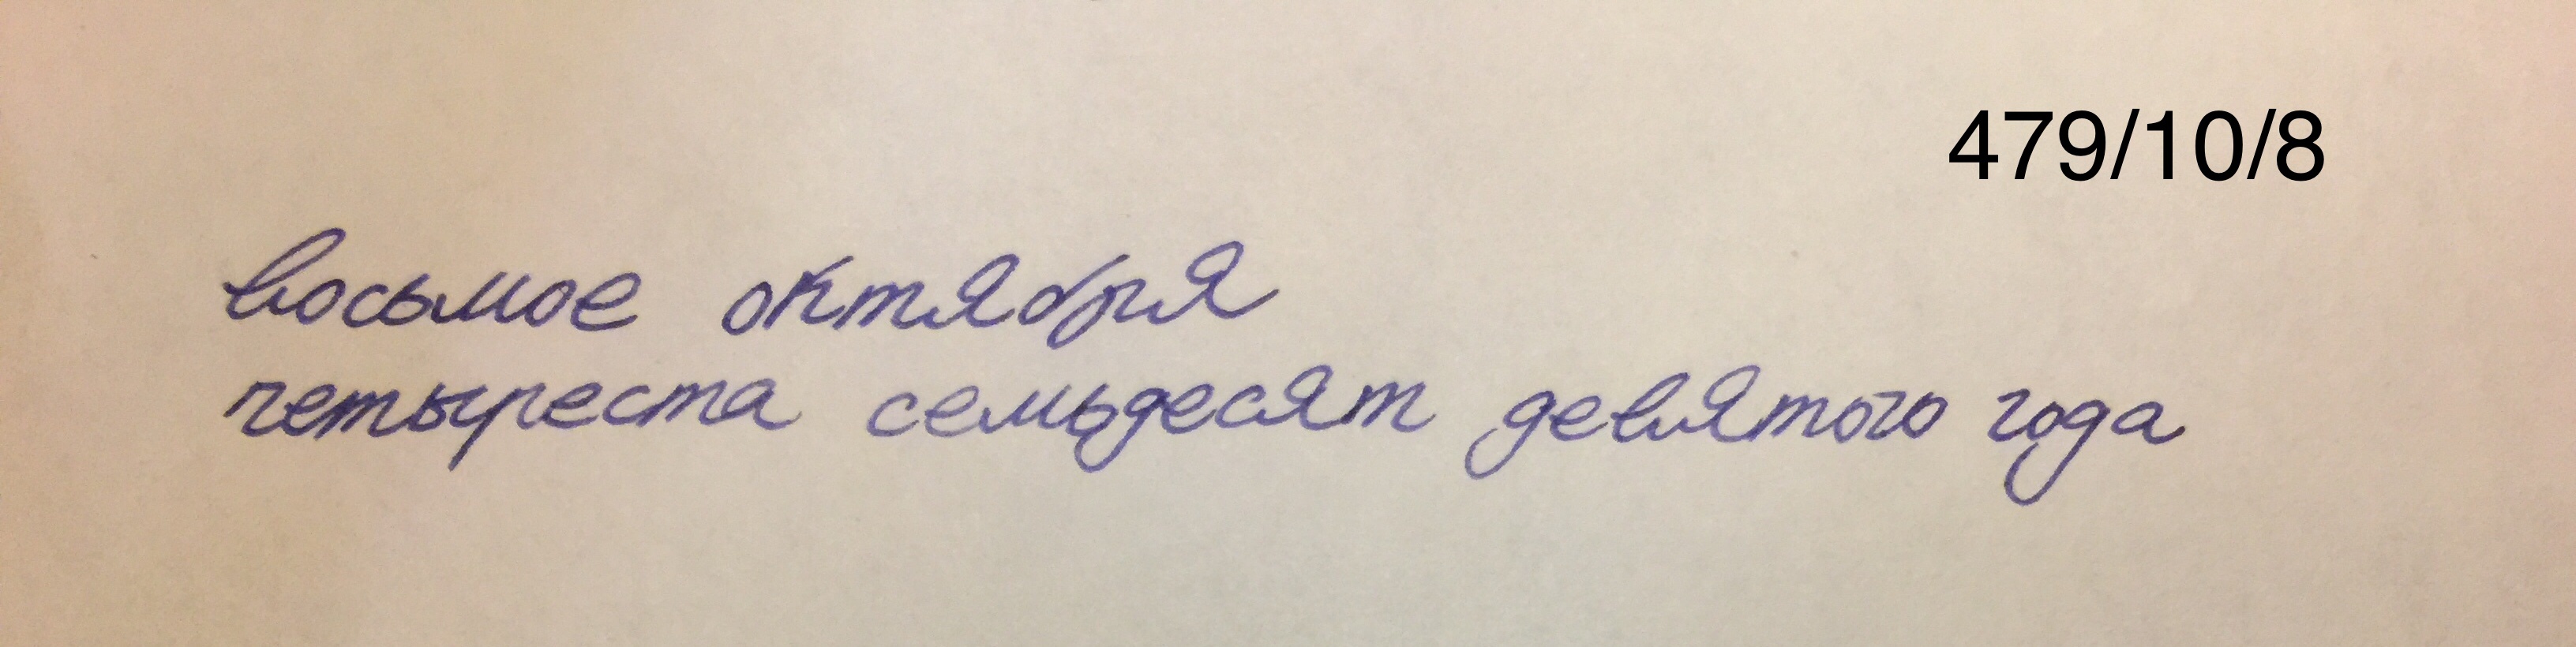 479/10/8
восьмое октября
четыреста семьдесят девятого года